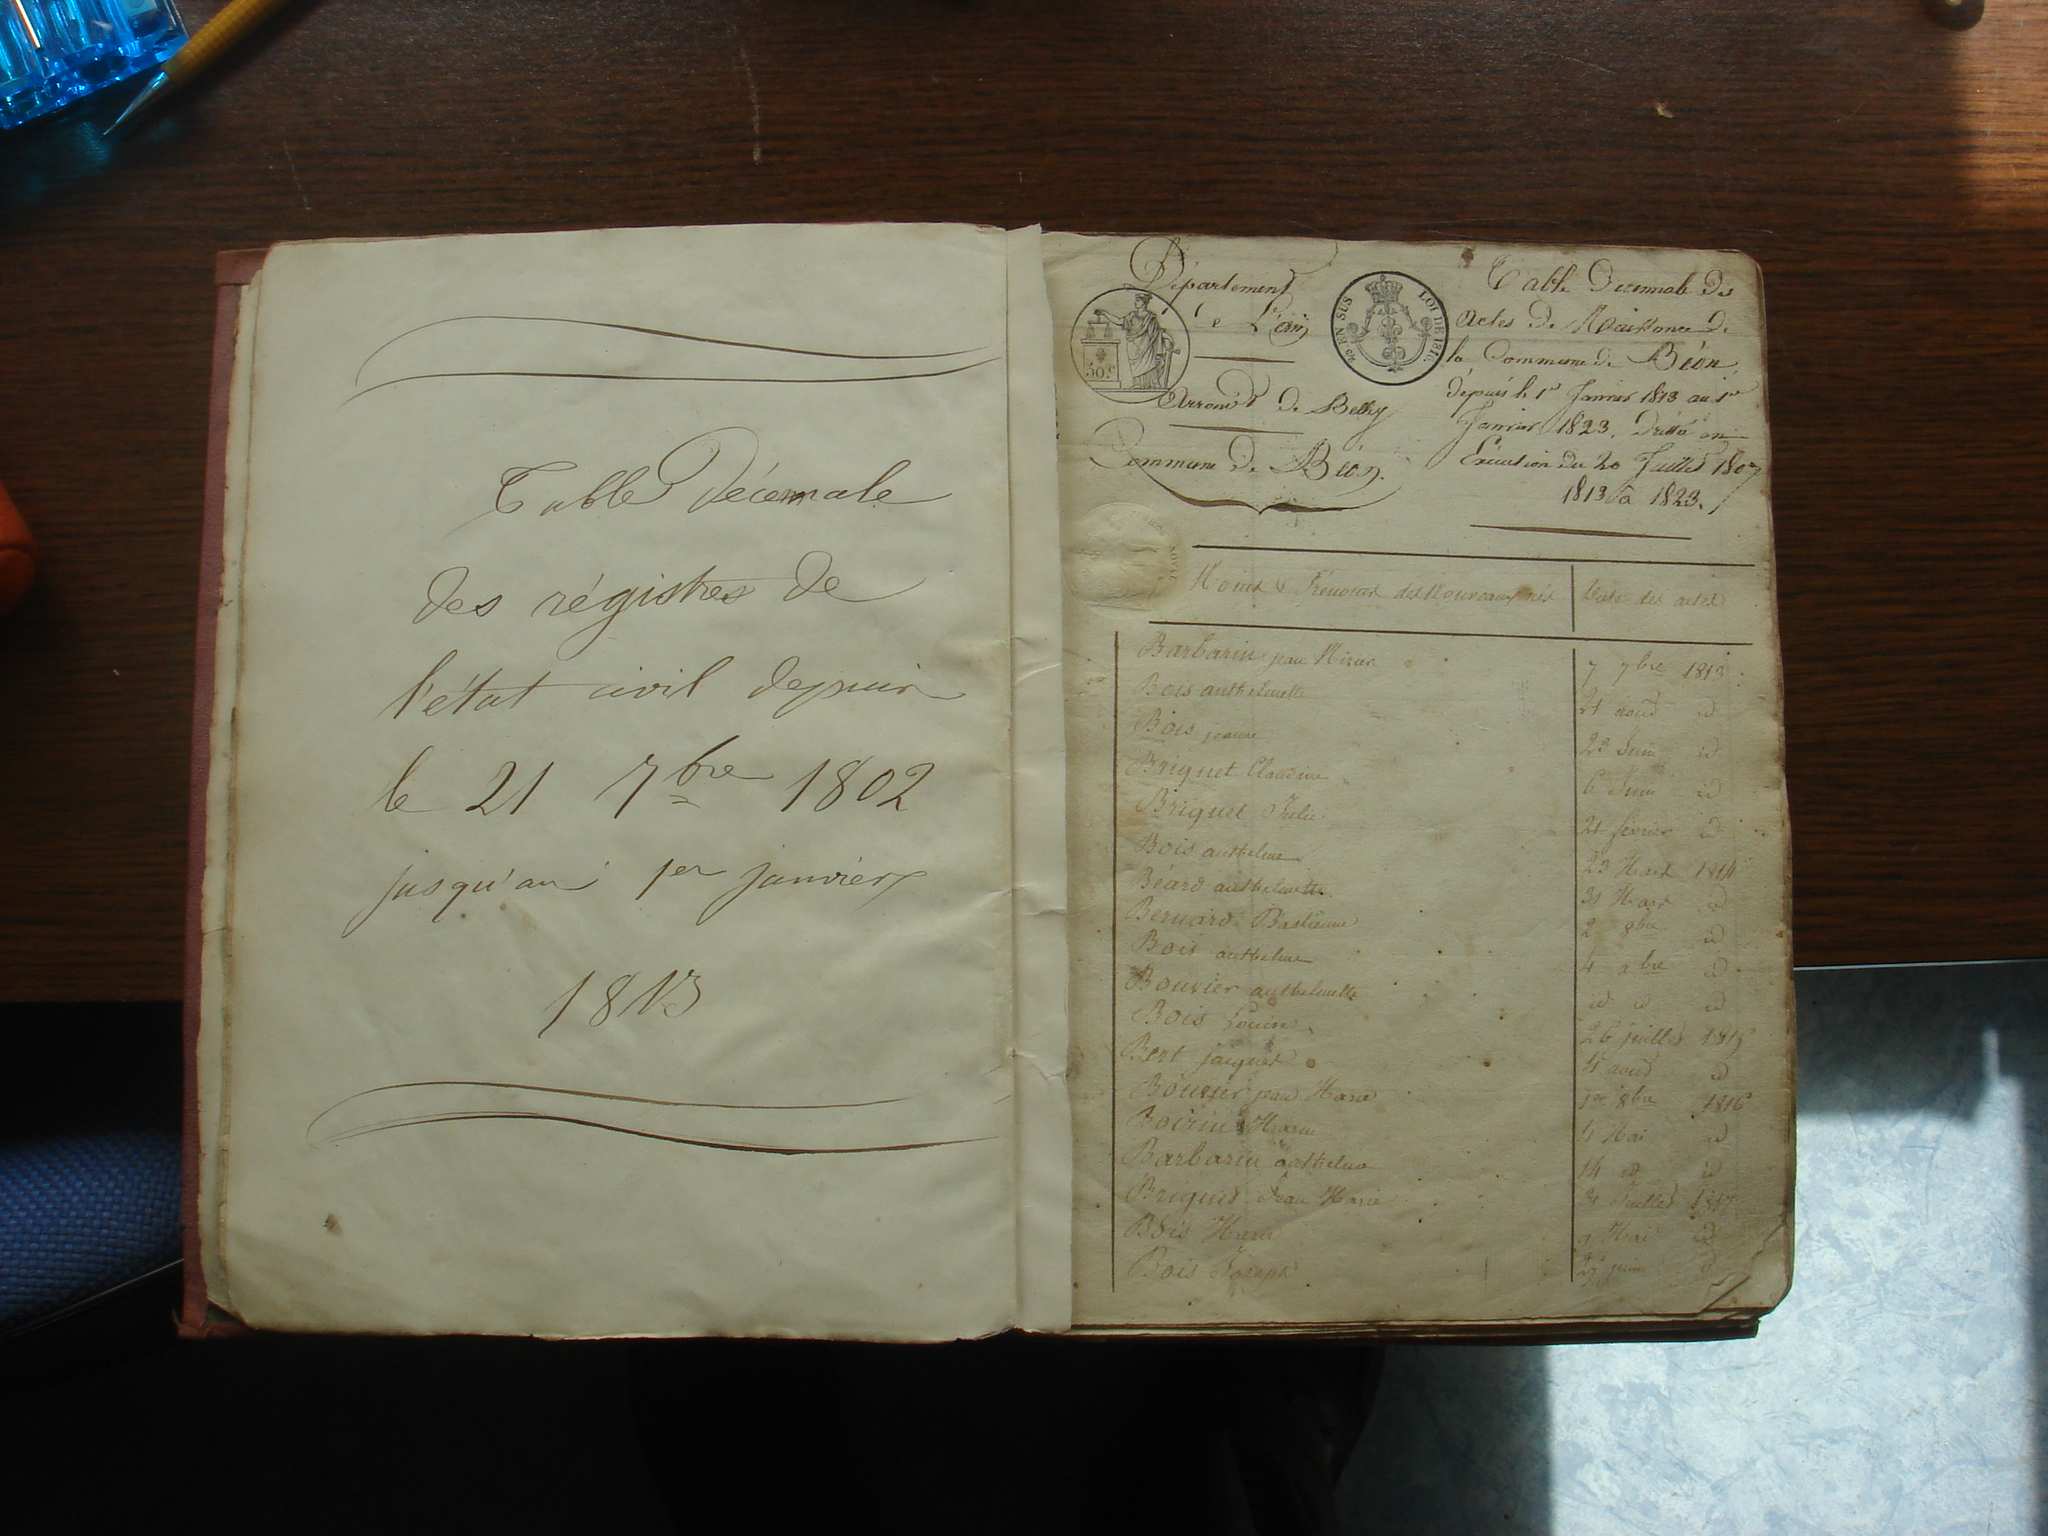 Table décennale
des régistres de
l'état civil depuis
le 21 7bre 1802
jusqu'au 1er janvier
1813
Département
de L'ain
Arrond.t de Belley
Commune de Béon.
30 c
EN SUS
LOI DE 1816.
Table Decennale des
Actes de Naissance de
la Commune de Béon,
depuis le 1er Janvier 1813 au 1er
Janvier 1823. Dressé en
Exécution du 20 Juillet 1807
1813 à 1823.
Noms & Prénoms des Nouveaux nés Date des actes
Barbarin jean 7 7bre 1813
Bois anthelmette 21 aoust id
Bois jeanne 22 Juin id
Briquet Claudine 6 Juin id
Briquet Julie 21 février id
Bois anthelme 23 Mars 1814
Béard anthelmette 31 Mars id
Bernard Bastienne 2 8bre id
Bois anthelme 4 9bre id
Bouvier anthelmette id id id
Bois Louise 26 juillet 1815
Bert jacques 4 aoust id
Bouvier jean Marie 1er 8bre 1816
Boirin Marie 4 Mai id
Barbarin anthelme 14 id id
Briquet Jean Marie Juillet 1817
Bois Marie 9 Mai id
Bois Joseph 27 juin id